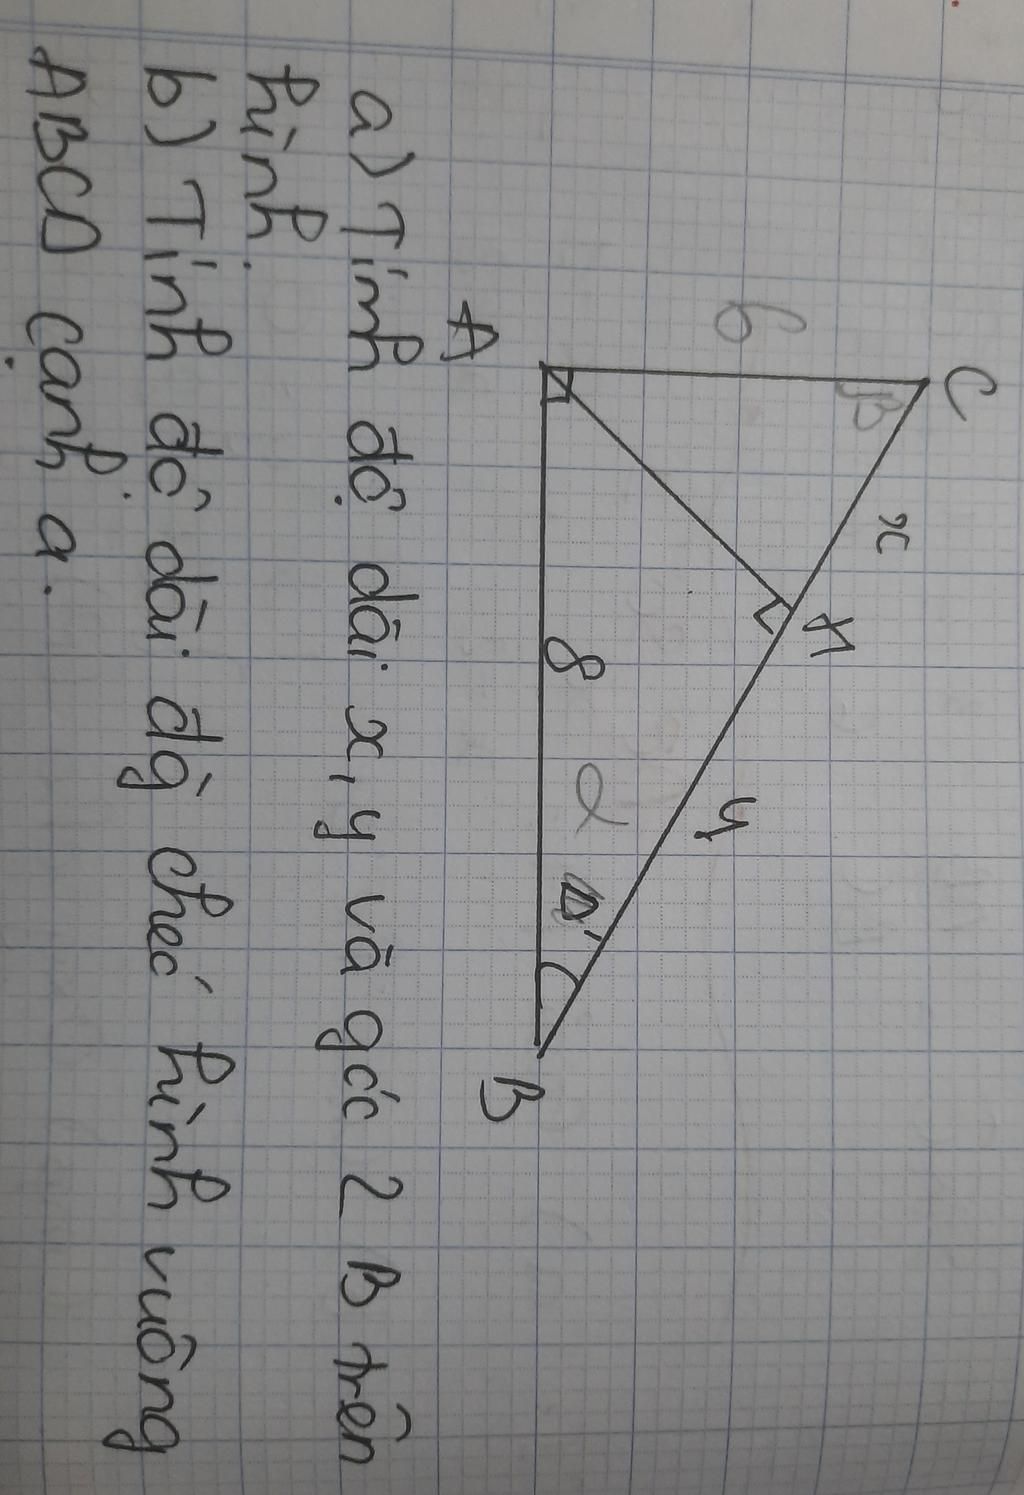 C
6
β
x
H
y
A
8
α
B
a) Tính độ dài x, y và góc 2 B trên
hình.
b) Tính đô dài đg chéc hình vuông
ABCD cạnh a.